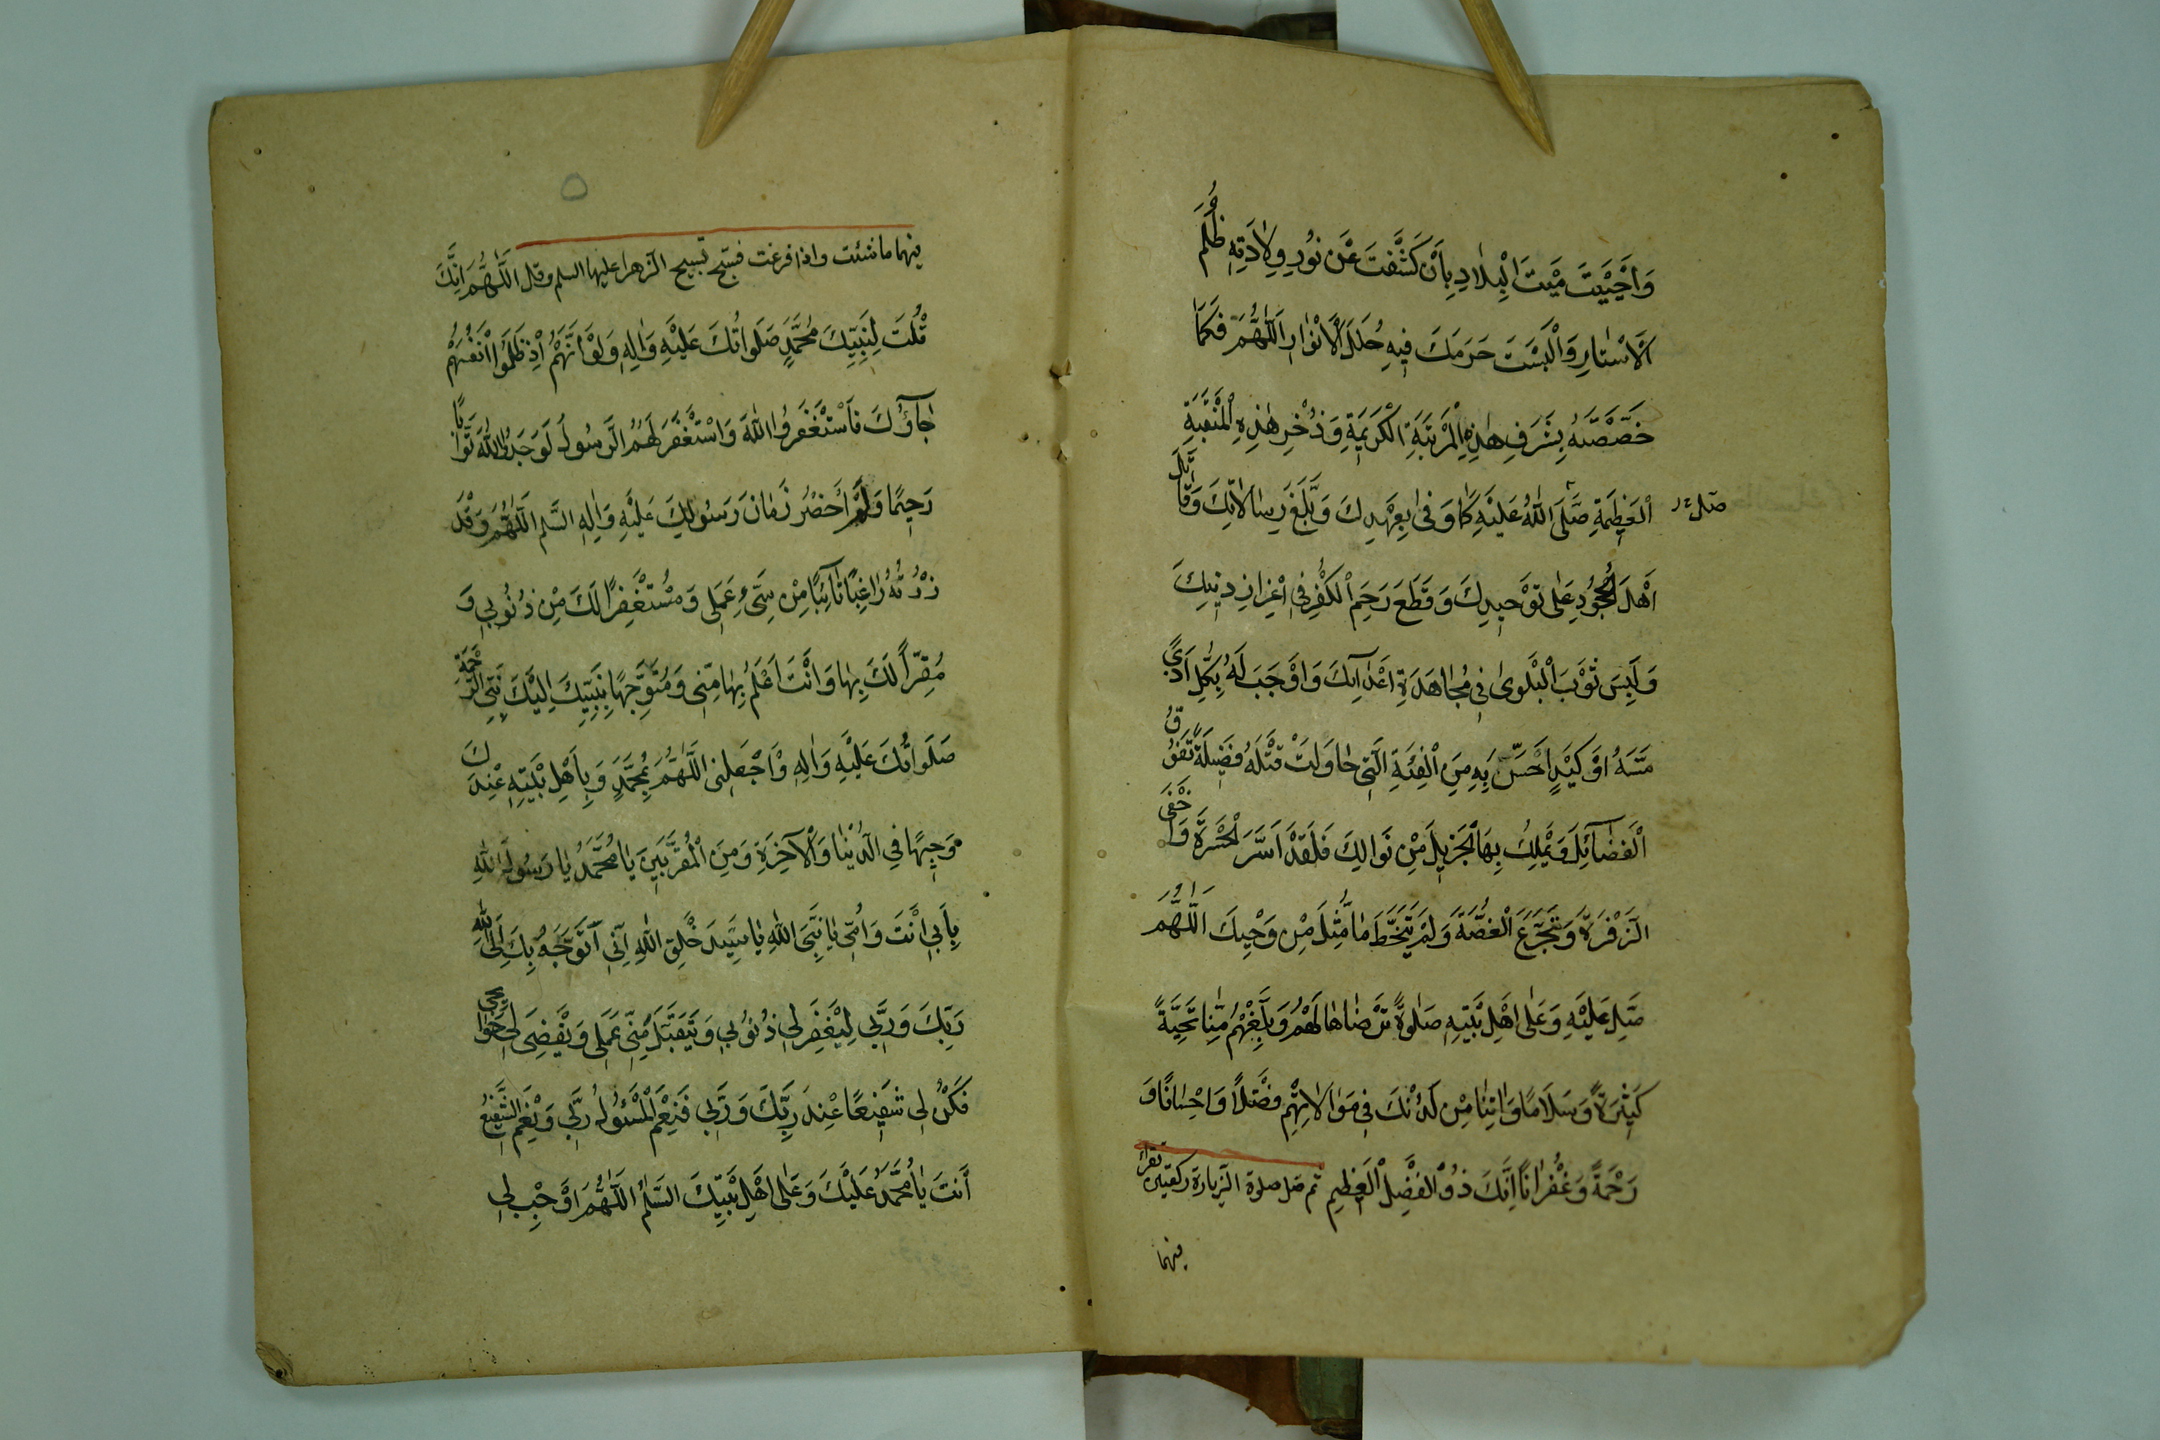 وَاَحْيَيْتَ مَيْتَ الْبِلٰادِ بِاَنْ كَشَفْتَ عَنْ نُورِ وِلٰادَتِهِ ظُلَمَ
الْاَسْتٰارِ وَاَلْبَسْتَ حَرَمَكَ فيهِ حُلَلَ الْاَنْوٰارِ اَللّٰهُمَّ فَكَمٰا
خَصَصْتَهُ بِشَرَفِ هٰذِهِ الْمَرْتَبَةِ الْكَريمَةِ وَذُخْرِ هٰذِهِ الْمَنْقَبَةِ
الْعَظيمَةِ صَلَّى اللّٰهُ عَلَيْهِ كَمٰا وَفىٰ بِعَهْدِكَ وَبَلَّغَ رِسٰالاٰتِكَ وَقٰاتَلَ
صَلِّ
اَهْلَ الْجُحُودِ عَلىٰ تَوْحيدِكَ وَقَطَعَ رَحِمَ الْكُفْرِ فى اِعْزٰازِ دينِكَ
وَلَبِسَ ثَوْبَ الْبَلْوىٰ فى مُجٰاهَدَةِ اَعْدٰائِكَ وَاَوْجَبَ لَهُ بِكُلِّ اَذىً
مَسَّهُ اَوْ كَيْدٍ اَحَسَّ بِهِ مِنَ الْفِئَةِ الَّتى حٰاوَلَتْ قَتْلَهُ فَضيلَةً تَفُوقُ
الْفَضٰائِلَ وَيَمْلِكُ بِهَا الْجَزيلَ مِنْ نَوٰالِكَ فَلَقَدْ اَسَرَّ الْحَسْرَةَ وَاَخْفَى
الزَّفْرَةَ وَتَجَرَّعَ الْغُصَّةَ وَلَمْ يَتَخَطَّ مٰا مُثِّلَ مِنْ وَحْيِكَ اَللّٰهُمَّ
صَلِّ عَلَيْهِ وَعَلىٰ اَهْلِ بَيْتِهِ صَلٰوةً تَرْضٰاهٰا لَهُمْ وَبَلِّغْهُمْ مِنّٰا تَحِيَّةً
كَثيرَةً وَسَلٰامًا وَاٰتِنٰا مِنْ لَدُنْكَ فى مَوٰالاٰتِهِمْ فَضْلًا وَاِحْسٰانًا وَ
رَحْمَةً وَغُفْرٰانًا اِنَّكَ ذُو الْفَضْلِ الْعَظيمِ ثم صل صلوة الزيارة ركعتين تقرأ
فيهما
٥
فيهما ما شئت واذا فرغت فسبّح تسبيح الزهرا عليها السلم وقل اَللّٰهُمَّ اِنَّكَ
قُلْتَ لِنَبِيِّكَ مُحَمَّدٍ صَلَوٰاتُكَ عَلَيْهِ وَاٰلِهِ وَلَوْ اَنَّهُمْ اِذْ ظَلَمُوا اَنْفُسَهُمْ
جٰاؤُكَ فَاسْتَغْفَرُوا اللّٰهَ وَاسْتَغْفَرَ لَهُمُ الرَّسُولُ لَوَجَدُوا اللّٰهَ تَوّٰابًا
رَحيمًا وَلَمْ اَحْضُرْ زَمٰانَ رَسُولِكَ عَلَيْهِ وَاٰلِهِ السَّلٰم اَللّٰهُمَّ وَقَدْ
زُرْتُهُ رٰاغِبًا تٰائِبًا مِنْ سَيِّئِ عَمَلى وَمُسْتَغْفِرًا لَكَ مِنْ ذُنُوبى وَ
مُقِرًّا لَكَ بِهٰا وَاَنْتَ اَعْلَمُ بِهٰا مِنّى وَمُتَوَجِّهًا بِنَبِيِّكَ اِلَيْكَ نَبِىِّ الرَّحْمَةِ
صَلَوٰاتُكَ عَلَيْهِ وَاٰلِهِ وَاجْعَلْنى اَللّٰهُمَّ بِمُحَمَّدٍ وَبِاَهْلِ بَيْتِهِ عِنْدَكَ
وَجيهًا فِى الدُّنْيٰا وَالْاٰخِرَةِ وَمِنَ الْمُقَرَّبينَ يٰا مُحَمَّدُ يٰا رَسُولَ اللّٰهِ
بِاَبى اَنْتَ وَاُمّى يٰا نَبِىَّ اللّٰهِ يٰا سَيِّدَ خَلْقِ اللّٰهِ اِنّى اَتَوَجَّهُ بِكَ اِلَى اللّٰهِ
رَبِّكَ وَرَبّى لِيَغْفِرَ لى ذُنُوبى وَيَتَقَبَّلَ مِنّى عَمَلى وَيَقْضِىَ لى حَوٰائِجى
فَكُنْ لى شَفيعًا عِنْدَ رَبِّكَ وَرَبّى فَنِعْمَ الْمَسْئُولُ رَبّى وَنِعْمَ الشَّفيعُ
اَنْتَ يٰا مُحَمَّدُ عَلَيْكَ وَعَلىٰ اَهْلِ بَيْتِكَ السَّلٰمُ اَللّٰهُمَّ اَوْجِبْ لى